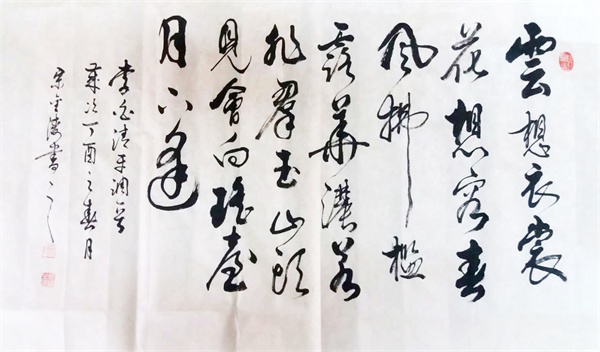 雲想衣裳
花想容春
風拂檻
露華濃若
非羣玉山頭
見會向瑤臺
月下逢
李白清平調
歲次丁酉之春月
書